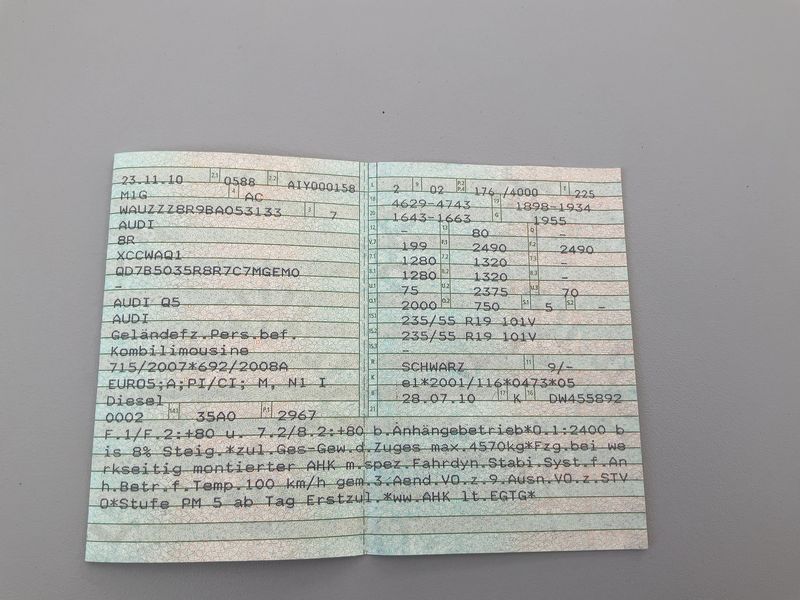 23.11.10 2.1 0588 2.2 AIY000158
M1G 4 AC
WAUZZZ8R9BA053133 3 7
AUDI
8R
XCCWAQ1
QD7B5035R8R7C7MGEM0
-
AUDI Q5
AUDI
Geländefz.Pers.bef.
Kombilimousine
715/2007*692/2008A
EURO5;A;PI/CI; M, N1 I
Diesel
0002 35A0 2967
L 2 9 02 P.2 P.4 176 /4000 T 225
18 4629-4743 19 1898-1934
20 1643-1663 G 1955
12 - 13 80 Q -
V.7 199 F.1 2490 F.2 2490
7.1 1280 7.2 1320 7.3 -
8.1 1280 8.2 1320 8.3 -
U.1 75 U.2 2375 U.3 70
O.1 2000 O.2 750 S.1 5 S.2 -
15.1 235/55 R19 101V
15.2 235/55 R19 101V
15.3 -
R SCHWARZ 11 9/-
K e1*2001/116*0473*05
6 28.07.10 17 K 16 DW455892
21
F.1/F.2:+80 u. 7.2/8.2:+80 b.Anhängebetrieb*O.1:2400 b
is 8% Steig.*zul.Ges-Gew.d.Zuges max.4570kg*Fzg.bei we
rkseitig montierter AHK m.spez.Fahrdyn.Stabi.Syst.f.An
h.Betr.f.Temp.100 km/h gem.3.Aend.VO.z.9.Ausn.VO.z.STV
O*Stufe PM 5 ab Tag Erstzul.*ww.AHK lt.EGTG*